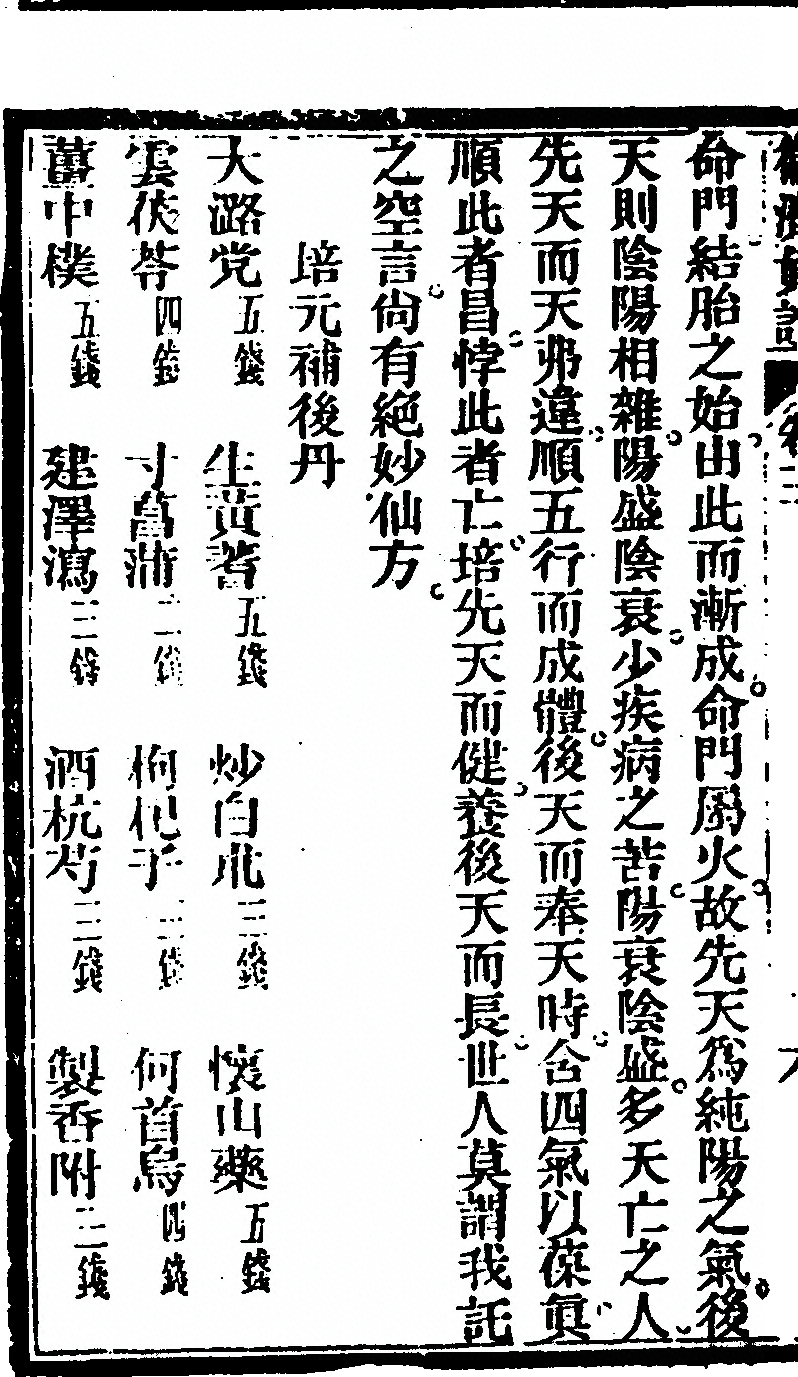 命門結胎之始由此而漸成命門屬火故先天爲純陽之氣後
天則陰陽相雜陽盛陰衰少疾病之苦陽衰陰盛多夭亡之人
先天而天弗違順五行而成體後天而奉天時含四氣以葆眞
順此者昌悖此者亡培先天而健養後天而長世人莫謂我託
之空言尙有絕妙仙方
培元補後丹
大潞党五錢 生黃蓍五錢 炒白朮三錢 懷山藥五錢
雲茯苓四錢 寸菖蒲二錢 枸杞子三錢 何首烏四錢
薑中樸五錢 建澤瀉三錢 酒杭芍三錢 製香附三錢